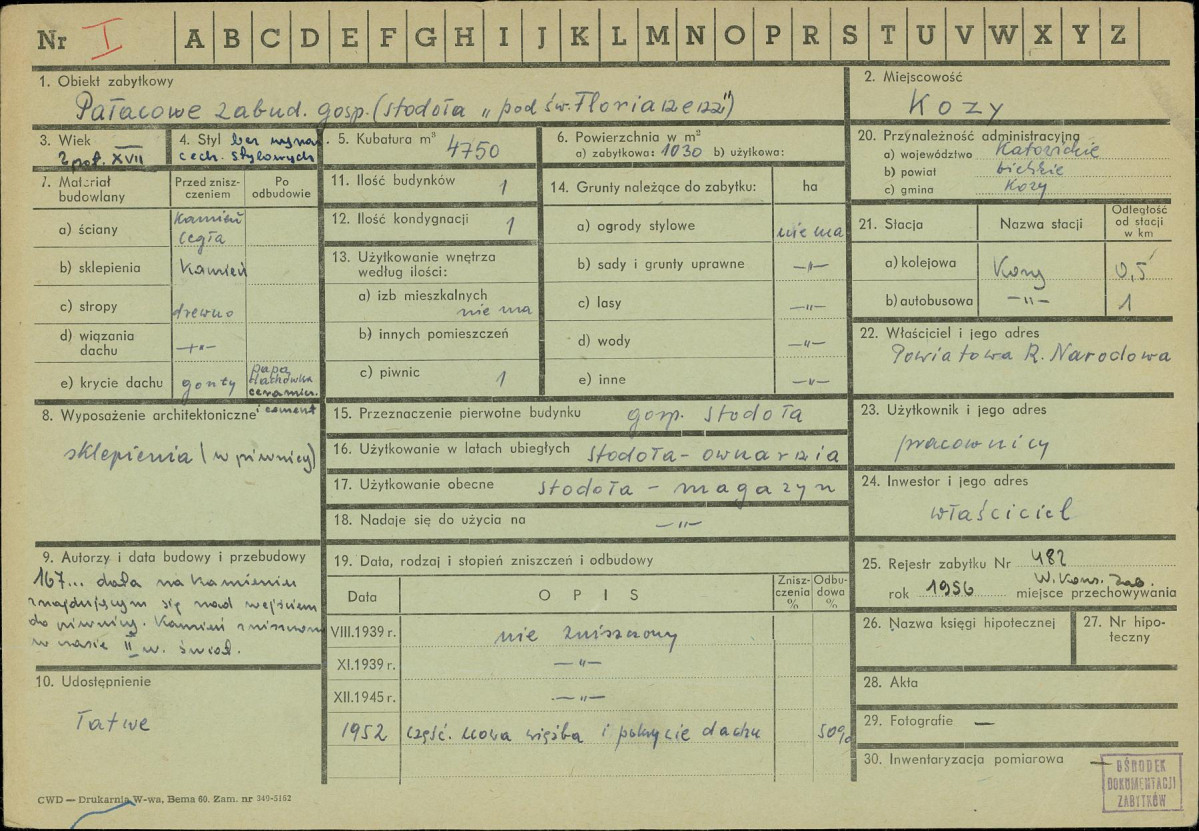 Nr I A B C D E F G H I J K L M N O P R S T U V W X Y Z
1. Obiekt zabytkowy
Pałacowe zabud. gosp. (stodoła „pod św. Florianem")
2. Miejscowość
Kozy
3. Wiek
2 poł. XVII
4. Styl bez wyraź.
cech. stylowych
5. Kubatura m³ 4750
6. Powierzchnia w m²
a) zabytkowa: 1030 b) użytkowa:
20. Przynależność administracyjna
a) województwo Katowickie
b) powiat bielskie
c) gmina Kozy
7. Materiał budowlany
Przed zniszczeniem
Po odbudowie
a) ściany kamień
cegła
b) sklepienia kamień
c) stropy drewno
d) wiązania
dachu —"—
e) krycie dachu gonty papa,
dachówka
ceramicz.
i cement
11. Ilość budynków 1
12. Ilość kondygnacji 1
13. Użytkowanie wnętrza
według ilości:
a) izb mieszkalnych
nie ma
b) innych pomieszczeń
c) piwnic 1
14. Grunty należące do zabytku: ha
a) ogrody stylowe nie ma
b) sady i grunty uprawne —"—
c) lasy —"—
d) wody —"—
e) inne —"—
21. Stacja Nazwa stacji Odległość
od stacji
w km
a) kolejowa Kozy 0,5
b) autobusowa —"— 1
22. Właściciel i jego adres
Powiatowa R. Narodowa
8. Wyposażenie architektoniczne
sklepienia (w piwnicy)
15. Przeznaczenie pierwotne budynku gosp. stodoła
16. Użytkowanie w latach ubiegłych stodoła - owczarnia
17. Użytkowanie obecne stodoła - magazyn
18. Nadaje się do użycia na —"—
23. Użytkownik i jego adres
pracownicy
24. Inwestor i jego adres
właściciel
9. Autorzy i data budowy i przebudowy
167... data na kamieniu
znajdującym się nad wejściem
do piwnicy. Kamień zniszczony
w czasie II w. świat.
10. Udostępnienie
Łatwe
19. Data, rodzaj i stopień zniszczeń i odbudowy
Data OPIS Zniszczenia % Odbudowa %
VIII.1939 r. nie zniszczony
XI.1939 r. —"—
XII.1945 r. —"—
1952 część. nowa więźba i pokrycie dachu 50%
25. Rejestr zabytku Nr 482
W. Kons. Zab.
rok 1956 miejsce przechowywania
26. Nazwa księgi hipotecznej
27. Nr hipoteczny
28. Akta
29. Fotografie —
30. Inwentaryzacja pomiarowa —
OŚRODEK
DOKUMENTACJI
ZABYTKÓW
CWD — Drukarnia W-wa, Bema 60. Zam. nr 340-5162